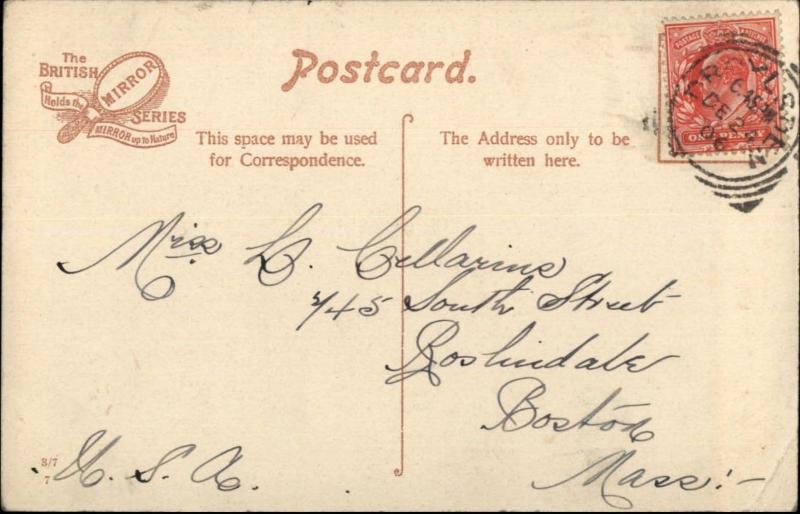 The
BRITISH
MIRROR
Holds the
SERIES
MIRROR up to Nature
Postcard.
This space may be used
for Correspondence.
The Address only to be
written here.
POSTAGE
ONE PENNY
DE
06
Miss L. Cellarius
745 South Street
Roslindale
Boston
Mass:-
U. S. A.
3/7
7